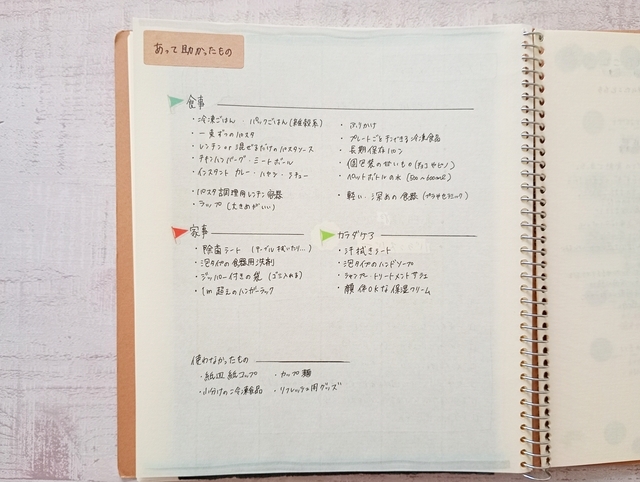 あって助かったもの
食事
・冷凍ごはん ・パックごはん(雑穀系)
・一束ずつのパスタ
・レンチン or 混ぜるだけのパスタソース
・チキンハンバーグ・ミートボール
・インスタント カレー・ハヤシ・シチュー
・パスタ調理用レンチン容器
・ラップ (大きめがいい)
・ふりかけ
・プレートごとチンできる冷凍食品
・長期保存パン
・個包装の甘いもの
・ペットボトルの水 (500~600ml)
・軽い・深めの食器 (プラやセラミック)
家事
・除菌シート (テーブル拭いたり…)
・泡タイプの食器用洗剤
・ジッパー付きの袋 (ゴミ入れる)
・1m超えのハンガーラック
カラダケア
・汗拭きシート
・泡タイプのハンドソープ
・シャンプー・トリートメント
・顔・体OKな保湿クリーム
使わなかったもの
・紙皿 紙コップ ・カップ麺
・小分けの冷凍食品 ・リフレッシュ用グッズ